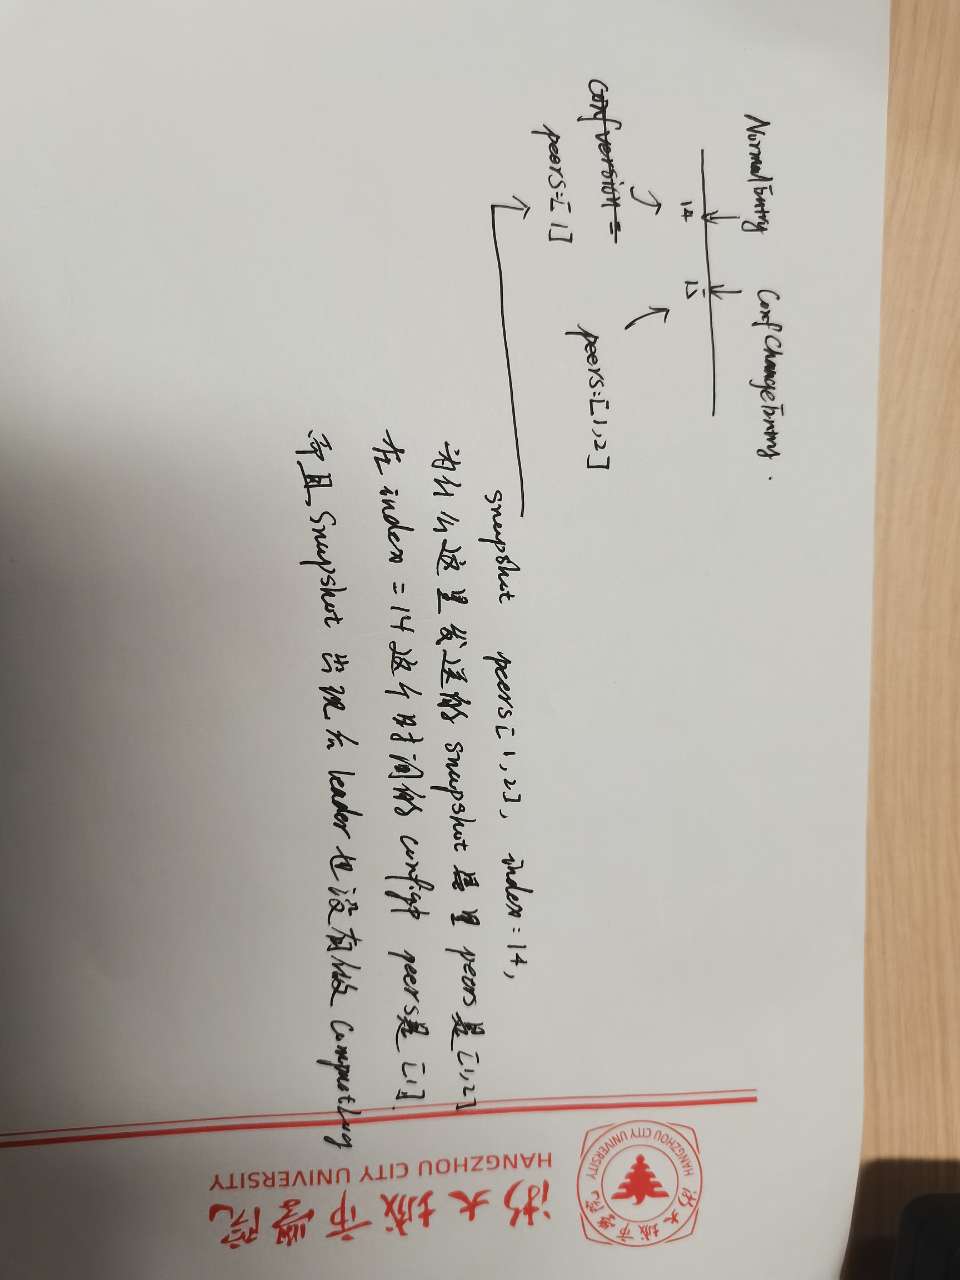 NormalEntry ConfChangeEntry.
14 15
Conf version =
peers=[1]
peers=[1,2]
snapshot peers[1,2], index=14,
为什么这里发送的snapshot里 peers是[1,2]
在index=14这个时间的 peers是[1].
并且,snapshot出现在leader也没有做compactLog
HANGZHOU CITY UNIVERSITY
浙大城市學院
HANGZHOU CITY UNIVERSITY
浙大城市學院